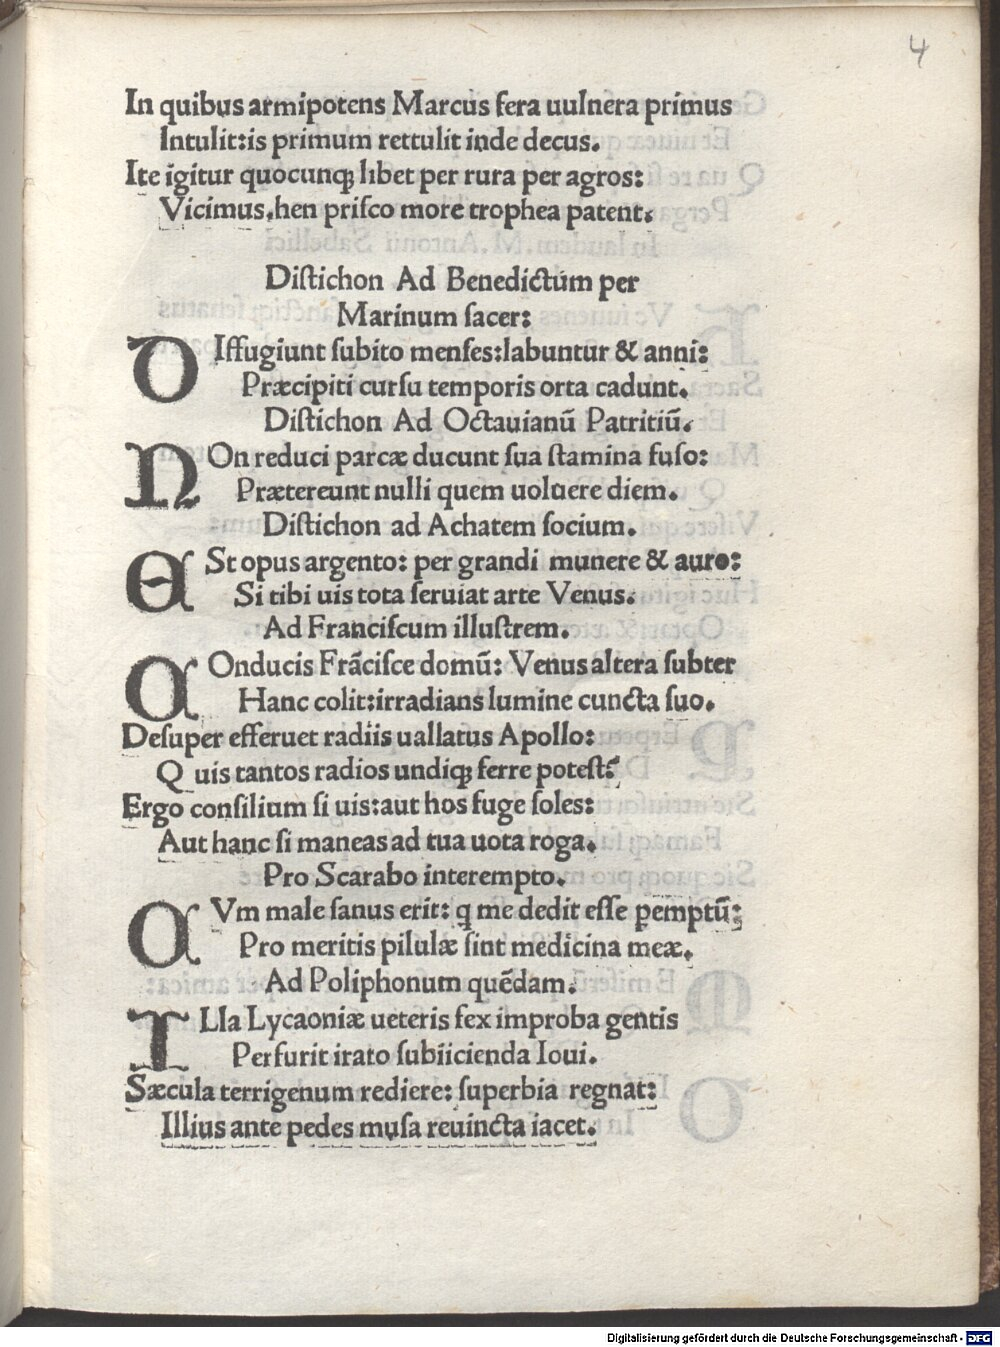 4
In quibus armipotens Marcus fera uulnera primus
Intulit:is primum rettulit inde decus.
Ite igitur quocunqꝫ libet per rura per agros:
Vicimus,hen prisco more trophea patent.
Distichon Ad Benedictum per
Marinum sacer:
DIffugiunt subito menses:labuntur & anni:
Præcipiti cursu temporis orta cadunt.
Distichon Ad Octauianū Patritiū.
NOn reduci parcæ ducunt sua stamina fuso:
Prætereunt nulli quem uoluere diem.
Distichon ad Achatem socium.
ESt opus argento: per grandi munere & auro:
Si tibi uis tota seruiat arte Venus.
Ad Franciscum illustrem.
COnducis Frācisce domū: Venus altera subter
Hanc colit:irradians lumine cuncta suo.
Desuper efferuet radiis uallatus Apollo:
Quis tantos radios undiqꝫ ferre potest?
Ergo consilium si uis:aut hos fuge soles:
Aut hanc si maneas ad tua uota roga.
Pro Scarabo interempto.
CVm male sanus erit: q me dedit esse pemptū:
Pro meritis pilulæ sint medicina meæ.
Ad Poliphonum quēdam.
ILla Lycaoniæ ueteris fex improba gentis
Perfurit irato subiicienda Ioui.
Sæcula terrigenum rediere: superbia regnat:
Illius ante pedes musa reuincta iacet.
Digitalisierung gefördert durch die Deutsche Forschungsgemeinschaft - DFG